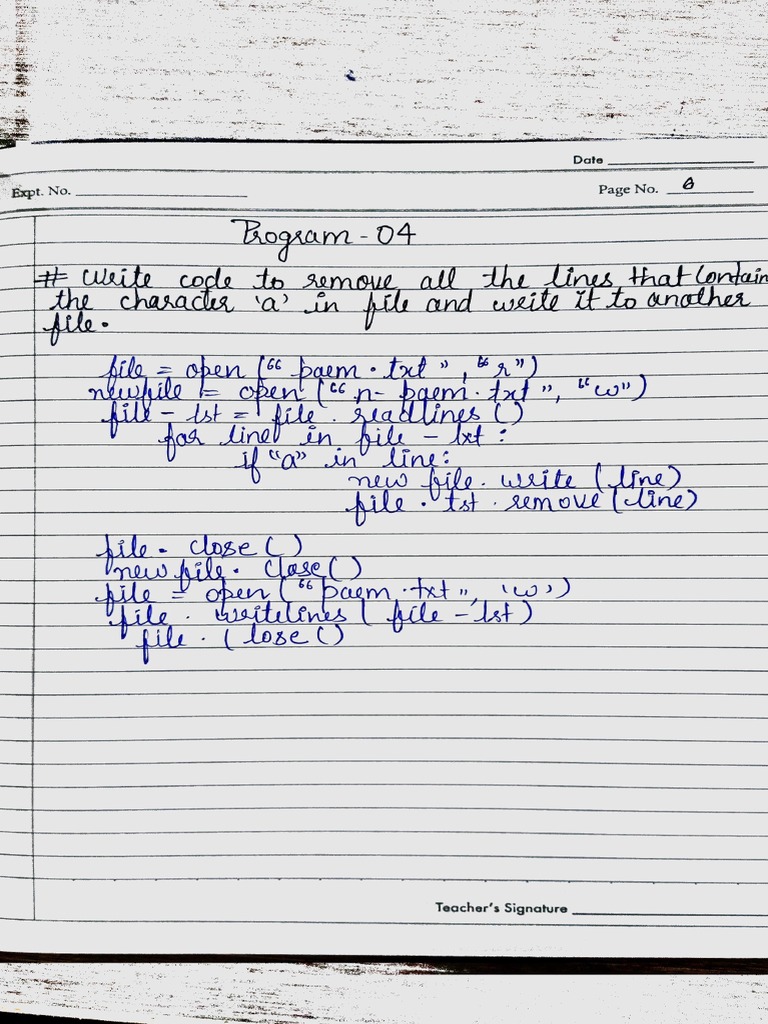 Date
Expt. No.
Page No. 6
Program - 04
# Write code to remove all the lines that Contain
the character 'a' in file and write it to another
file.
file = open (“ paem . txt ” , “ r ”)
newfile = open (“ n- paem. txt ”, “w”)
file - lst = file . readlines ()
for line in file - txt :
if “a” in line:
new file. write (line)
file . tst . remove (line)
file. close ( )
new file. close ()
file = open (“ paem .txt ”, 'w')
file . writelines ( file - lst )
file . (lose ()
Teacher's Signature